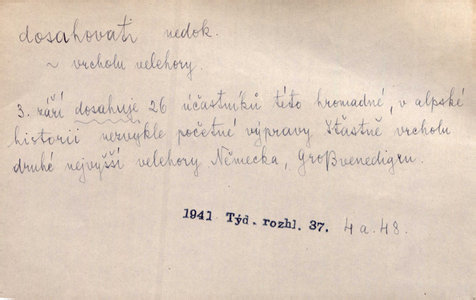 dosahovati nedok.
~ vrcholu velehory.
3. září dosahuje 26 účastníků této hromadné, v alpské
historii nezvykle početné výpravy šťastně vrcholu
druhé nejvyšší velehory Německa, Großvenedigru.
1941 Týd. rozhl. 37. 4 a. 48.